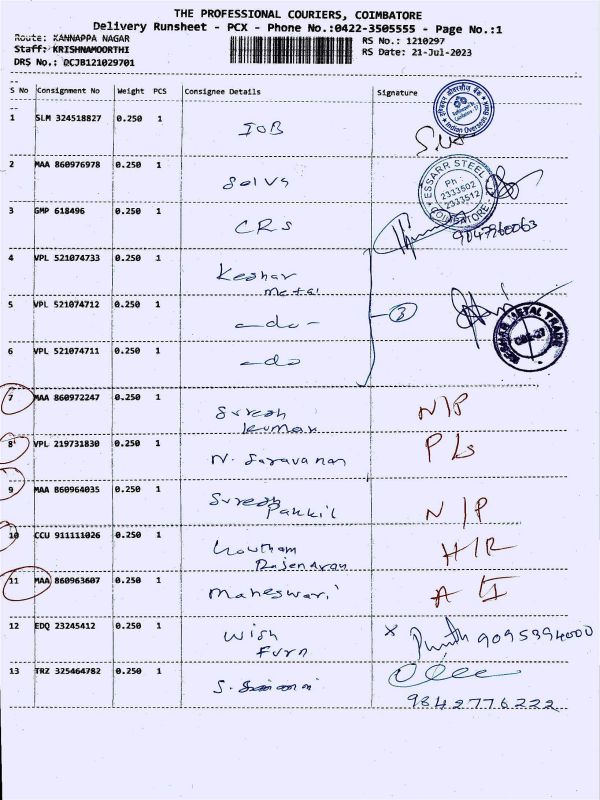 THE PROFESSIONAL COURIERS, COIMBATORE
Delivery Runsheet - PCX - Phone No.:0422-3505555 - Page No.:1
Route: KANNAPPA NAGAR
RS No.: 1210297
Staff: KRISHNAMOORTHI
RS Date: 21-Jul-2023
DRS No.: DCJB121029701
S No Consignment No Weight PCS Consignee Details Signature
1 SLM 324518827 0.250 1 IOB
Indian Overseas Bank
2 MAA 860976978 0.250 1 Selvs
ESSARR STEEL
Ph :
2333502
2333512
COIMBATORE
3 GMP 618496 0.250 1 CRS
9047960063
4 VPL 521074733 0.250 1 Keshar
metal
5 VPL 521074712 0.250 1 -do-
3
KESHAR METAL TRADE
6 VPL 521074711 0.250 1 -do
7 MAA 860972247 0.250 1 Suresh
kumar
N/P
8 VPL 219731830 0.250 1 N. Saravanan
P Ls
9 MAA 860964035 0.250 1 Suresh
N/P
10 CCU 911111026 0.250 1 Gowtham
Rajendran
H/R
11 MAA 860963607 0.250 1 Maheswari
A I
12 EDQ 23245412 0.250 1 Wish
Furn
x 9095394000
13 TRZ 325464782 0.250 1 S.
9842776222